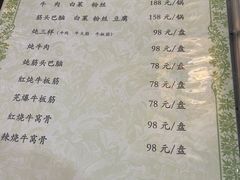 牛肉 白菜 粉丝 158元/锅
筋头巴脑 白菜 粉丝 豆腐 188元/锅
炖三样(牛肉 牛大筋 牛板筋) 98元/盘
炖牛肉 98元/盘
炖筋头巴脑 98元/盘
红炖牛板筋 78元/盘
芫爆牛板筋 78元/盘
红烧牛窝骨 98元/盘
辣烧牛窝骨 98元/盘